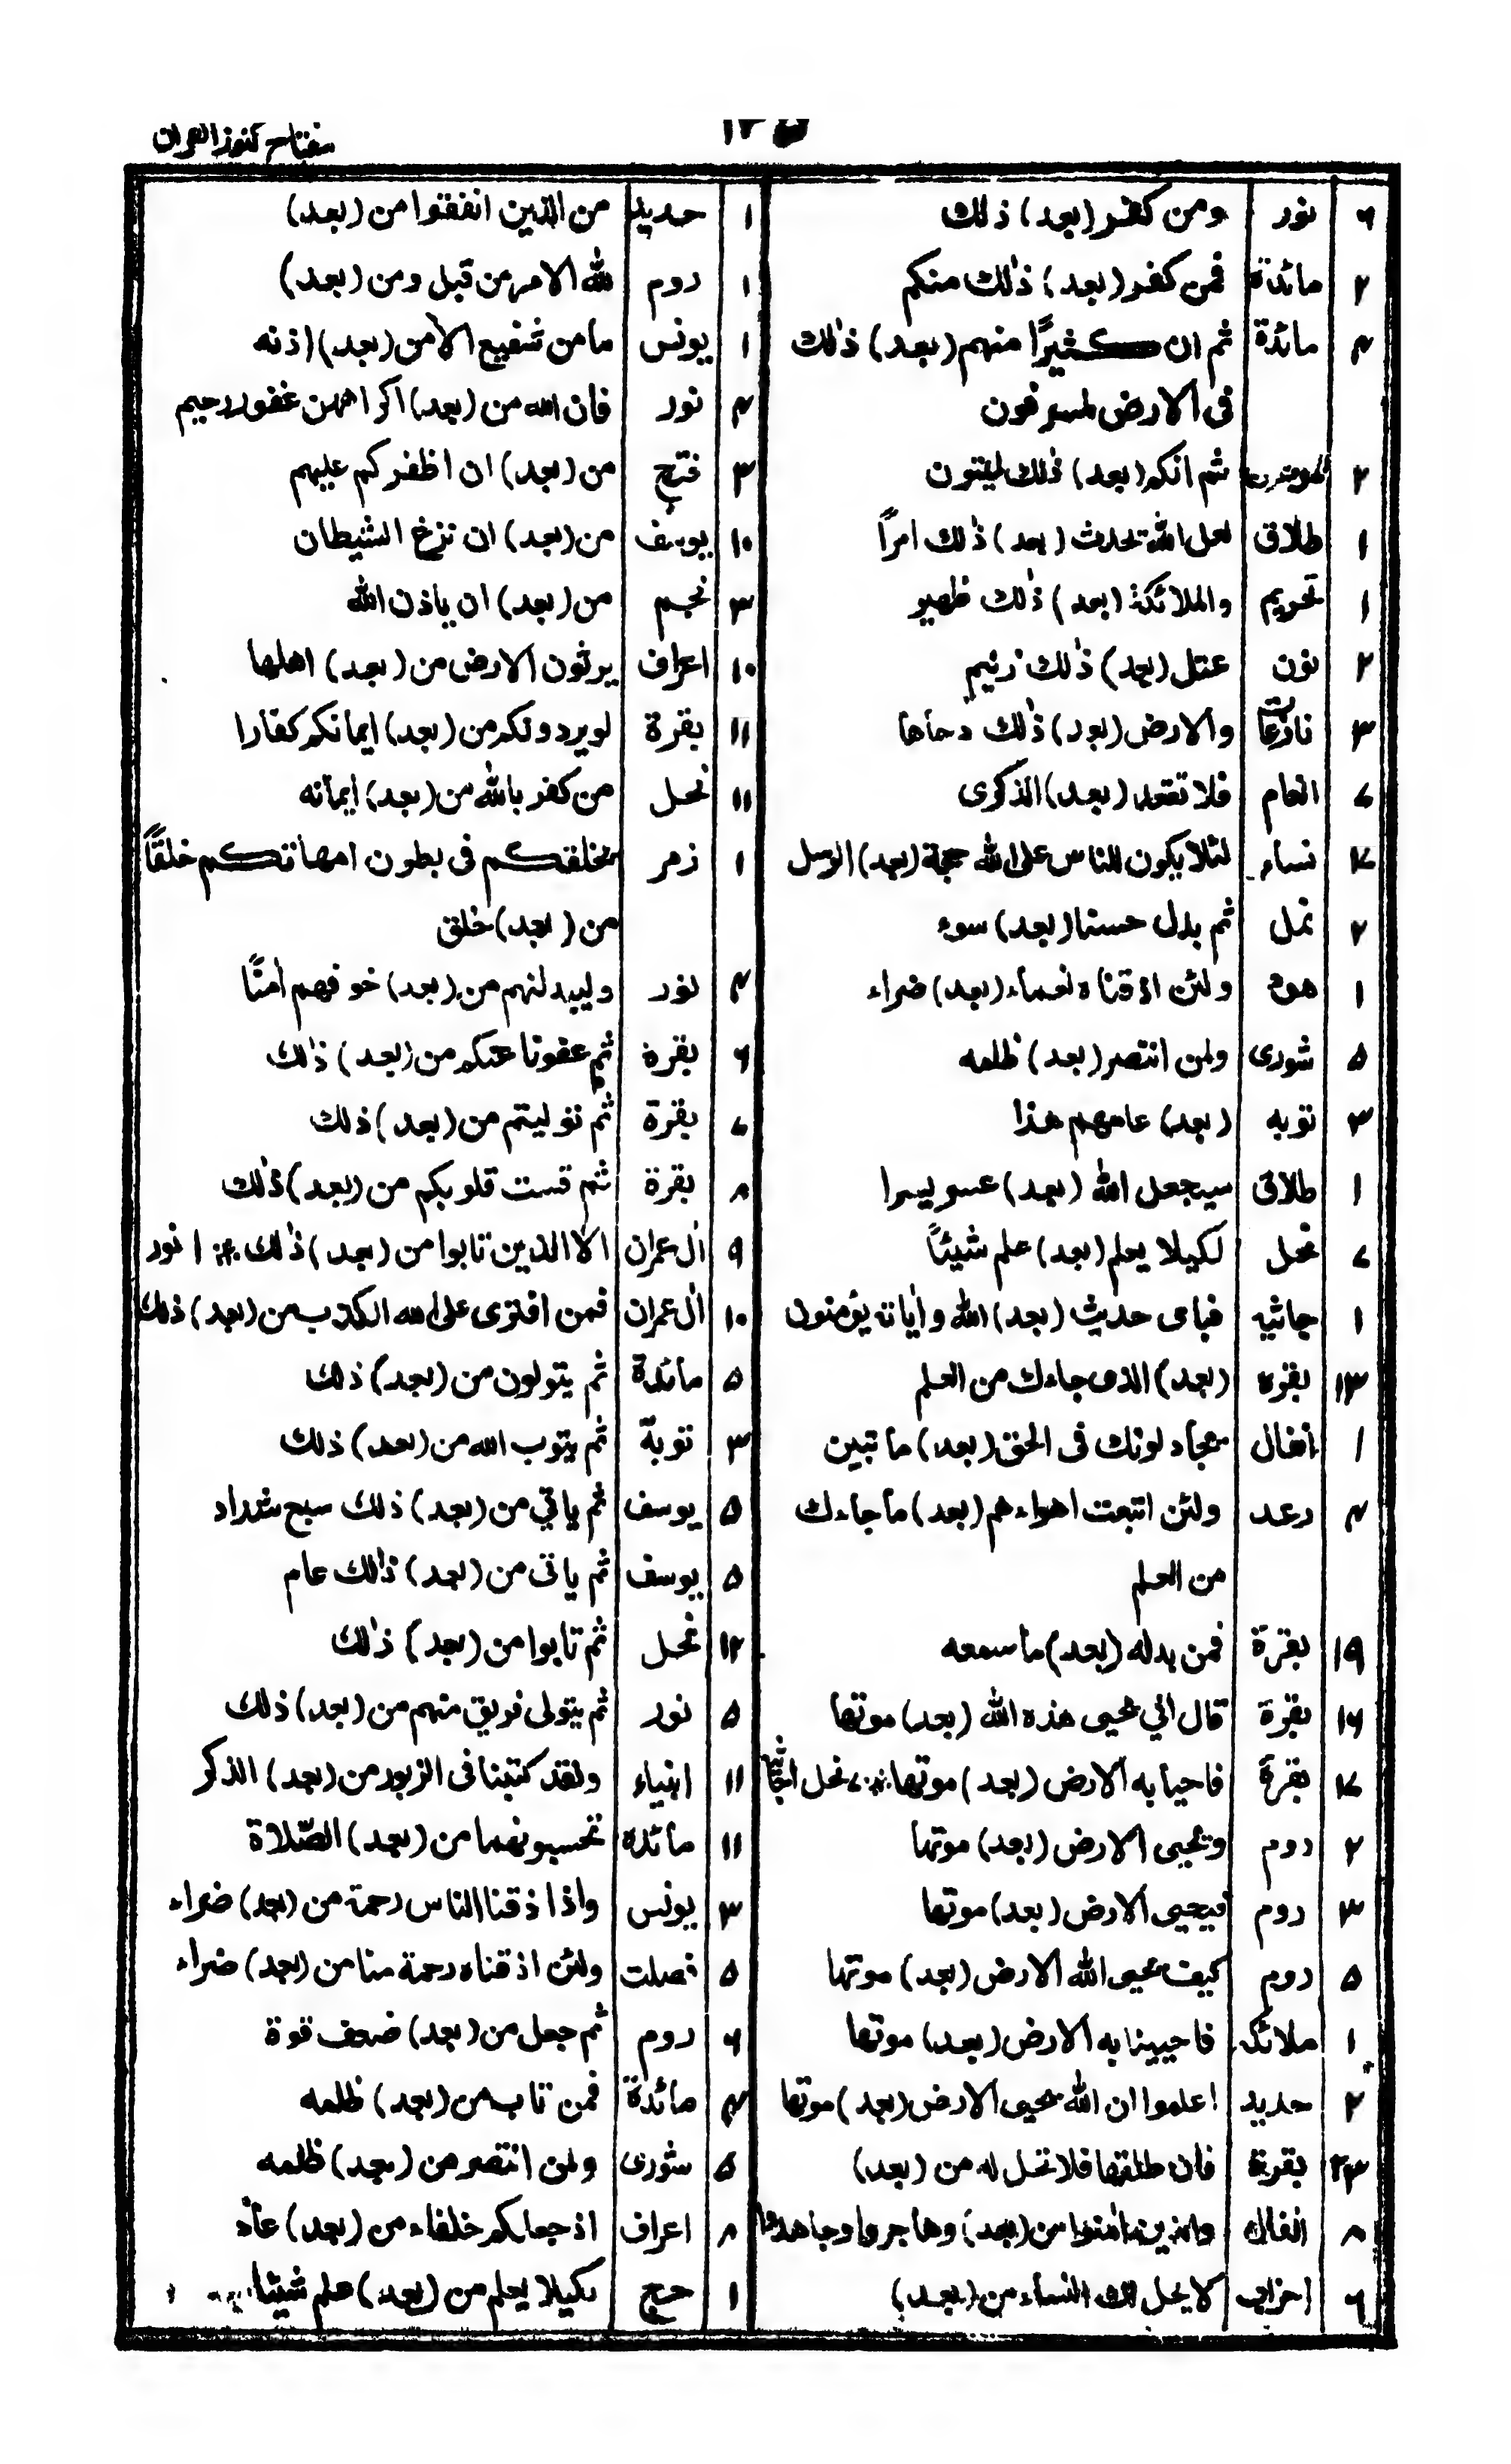 مفتاح كنوز القران
١٢٥
٦ نور ومن كفر (بعد) ذلك
٢ مائدة فمن كفر (بعد) ذلك منكم
٤ مائدة ثم ان كثيرًا منهم (بعد) ذٰلك
فى الارض لمسرفون
٢ ثم انكم (بعد) ذٰلك لميتون
١ طلاق لعل اللّٰه يحدث (بعد) ذٰلك امرًا
١ تحريم والملائكة (بعد) ذٰلك ظهير
٢ نون عتل (بعد) ذٰلك زنيم
٣ نازعات والارض (بعد) ذٰلك دحاها
٧ انعام فلا تقعد (بعد) الذكرى
٧ نساء لئلا يكون للناس على الله حجة (بعد) الرسل
٢ نمل ثم بدل حسنا (بعد) سوء
١ هود ولئن اذقناه نعماء (بعد) ضراء
٥ شورى ولمن انتصر (بعد) ظلمه
٣ توبه (بعد) عامهم هذا
١ طلاق سيجعل الله (بعد) عسر يسرا
٧ نحل لكيلا يعلم (بعد) علم شيئًا
١ جاثيه فباى حديث (بعد) الله وأياته يؤمنون
١٣ بقره (بعد) الذى جاءك من العلم
١ انفال يجادلونك فى الحق (بعد) ما تبين
٤ رعد ولئن اتبعت اهواءهم (بعد) ما جاءك
من العلم
١٩ بقرة فمن بدله (بعد) ما سمعه
١٦ بقرة قال انى يحيى هذه الله (بعد) موتها
١٧ بقرة فاحيا به الارض (بعد) موتها ٧ نحل
٢ روم ويحيى الارض (بعد) موتها
٣ روم فيحيى الارض (بعد) موتها
٥ روم كيف يحيى الله الارض (بعد) موتها
١ ملائكه فاحيينا به الارض (بعد) موتها
٢ حديد اعلموا ان الله يحيى الارض (بعد) موتها
٢٣ بقرة فان طلقها فلا تحل له من (بعد)
٨ انفال والذين اٰمنوا من (بعد) وهاجروا وجاهدوا
٦ احزاب لا يحل لك النساء من (بعد)
١ حديد من الذين انفقوا من (بعد)
١ روم لله الامر من قبل ومن (بعد)
١ يونس ما من شفيع الا من (بعد) اذنه
٤ نور فان الله من (بعد) اكراههن غفور رحيم
٣ فتح من (بعد) ان اظفركم عليهم
١٠ يوسف من (بعد) ان نزغ الشيطان
٣ نجم من (بعد) ان ياذن الله
١٠ اعراف يرثون الارض من (بعد) اهلها
١١ بقرة لو يردونكم من (بعد) ايمانكم كفارا
١١ نحل من كفر بالله من (بعد) ايمانه
١ زمر يخلقكم فى بطون امهاتكم خلقًا
من (بعد) خلق
٤ نور وليبدلنهم من (بعد) خوفهم امنًا
٦ بقرة ثم عفونا عنكم من (بعد) ذٰلك
٧ بقرة ثم توليتم من (بعد) ذلك
٨ بقرة ثم قست قلوبكم من (بعد) ذٰلك
٩ اٰل عمران الا الذين تابوا من (بعد) ذٰلك ١ نور
١٠ اٰل عمران فمن افترى على الله الكذب من (بعد) ذلك
٥ مائدة ثم يتولون من (بعد) ذلك
٣ توبة ثم يتوب الله من (بعد) ذلك
٥ يوسف ثم ياتي من (بعد) ذلك سبع شداد
٥ يوسف ثم ياتى من (بعد) ذٰلك عام
١٢ نحل ثم تابوا من (بعد) ذٰلك
٥ نور ثم يتولى فريق منهم من (بعد) ذلك
١١ انبياء ولقد كتبنا فى الزبور من (بعد) الذكر
١١ مائده تحسبونهما من (بعد) الصّلاة
٣ يونس واذا اذقنا الناس رحمة من (بعد) ضراء
٥ فصلت ولئن اذقناه رحمة منا من (بعد) ضراء
٦ روم ثم جعل من (بعد) ضعف قوة
٤ مائدة فمن تاب من (بعد) ظلمه
٥ شورى ولمن انتصر من (بعد) ظلمه
٨ اعراف اذ جعلكم خلفاء من (بعد) عاد
١ حج لكيلا يعلم من (بعد) علم شيئا